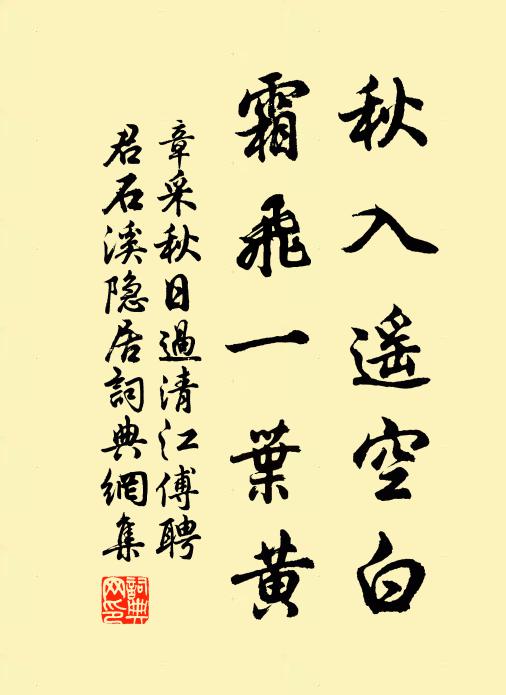 秋入遥空白
霜飛一葉黄
章采秋日過清江傅聘
君石溪隐居詞典網集
詞典網印